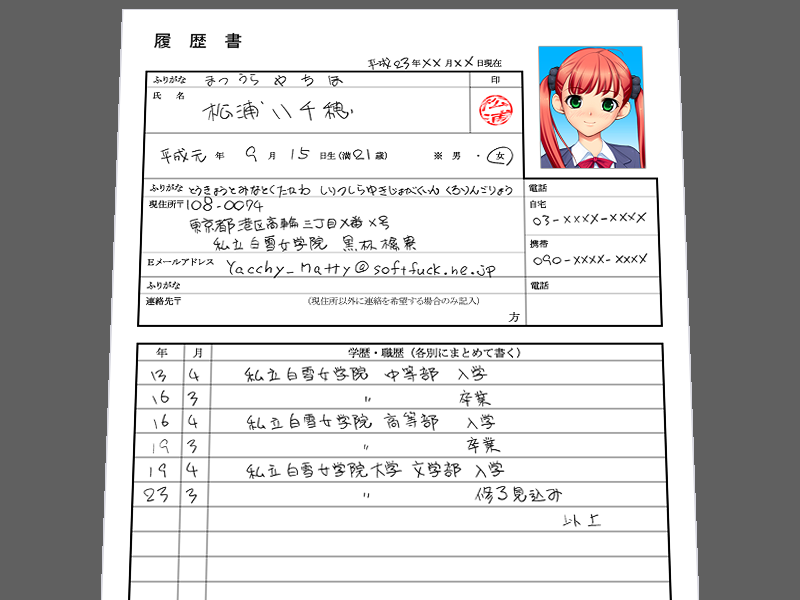 履歴書
平成23年××月××日現在
ふりがな まつうら やちほ 印
氏名 松浦 八千穂
松浦
平成元年 9月 15日生(満21歳) ※ 男・女
ふりがな とうきょうとみなとくたかなわ しりつしらゆきじょがくいん くろりんごりょう 電話
現住所〒108-0074 自宅
東京都港区高輪三丁目×番×号 03-××××-××××
私立白雪女学院 黒林檎寮 携帯
Eメールアドレス Yacchy_Matty@softfuck.ne.jp 090-××××-××××
ふりがな 電話
連絡先〒 (現住所以外に連絡を希望する場合のみ記入)
方
年 月 学歴・職歴(各別にまとめて書く)
13 4 私立白雪女学院 中等部 入学
16 3 〃 卒業
16 4 私立白雪女学院 高等部 入学
19 3 〃 卒業
19 4 私立白雪女学院大学 文学部 入学
23 3 〃 修了見込み
以上